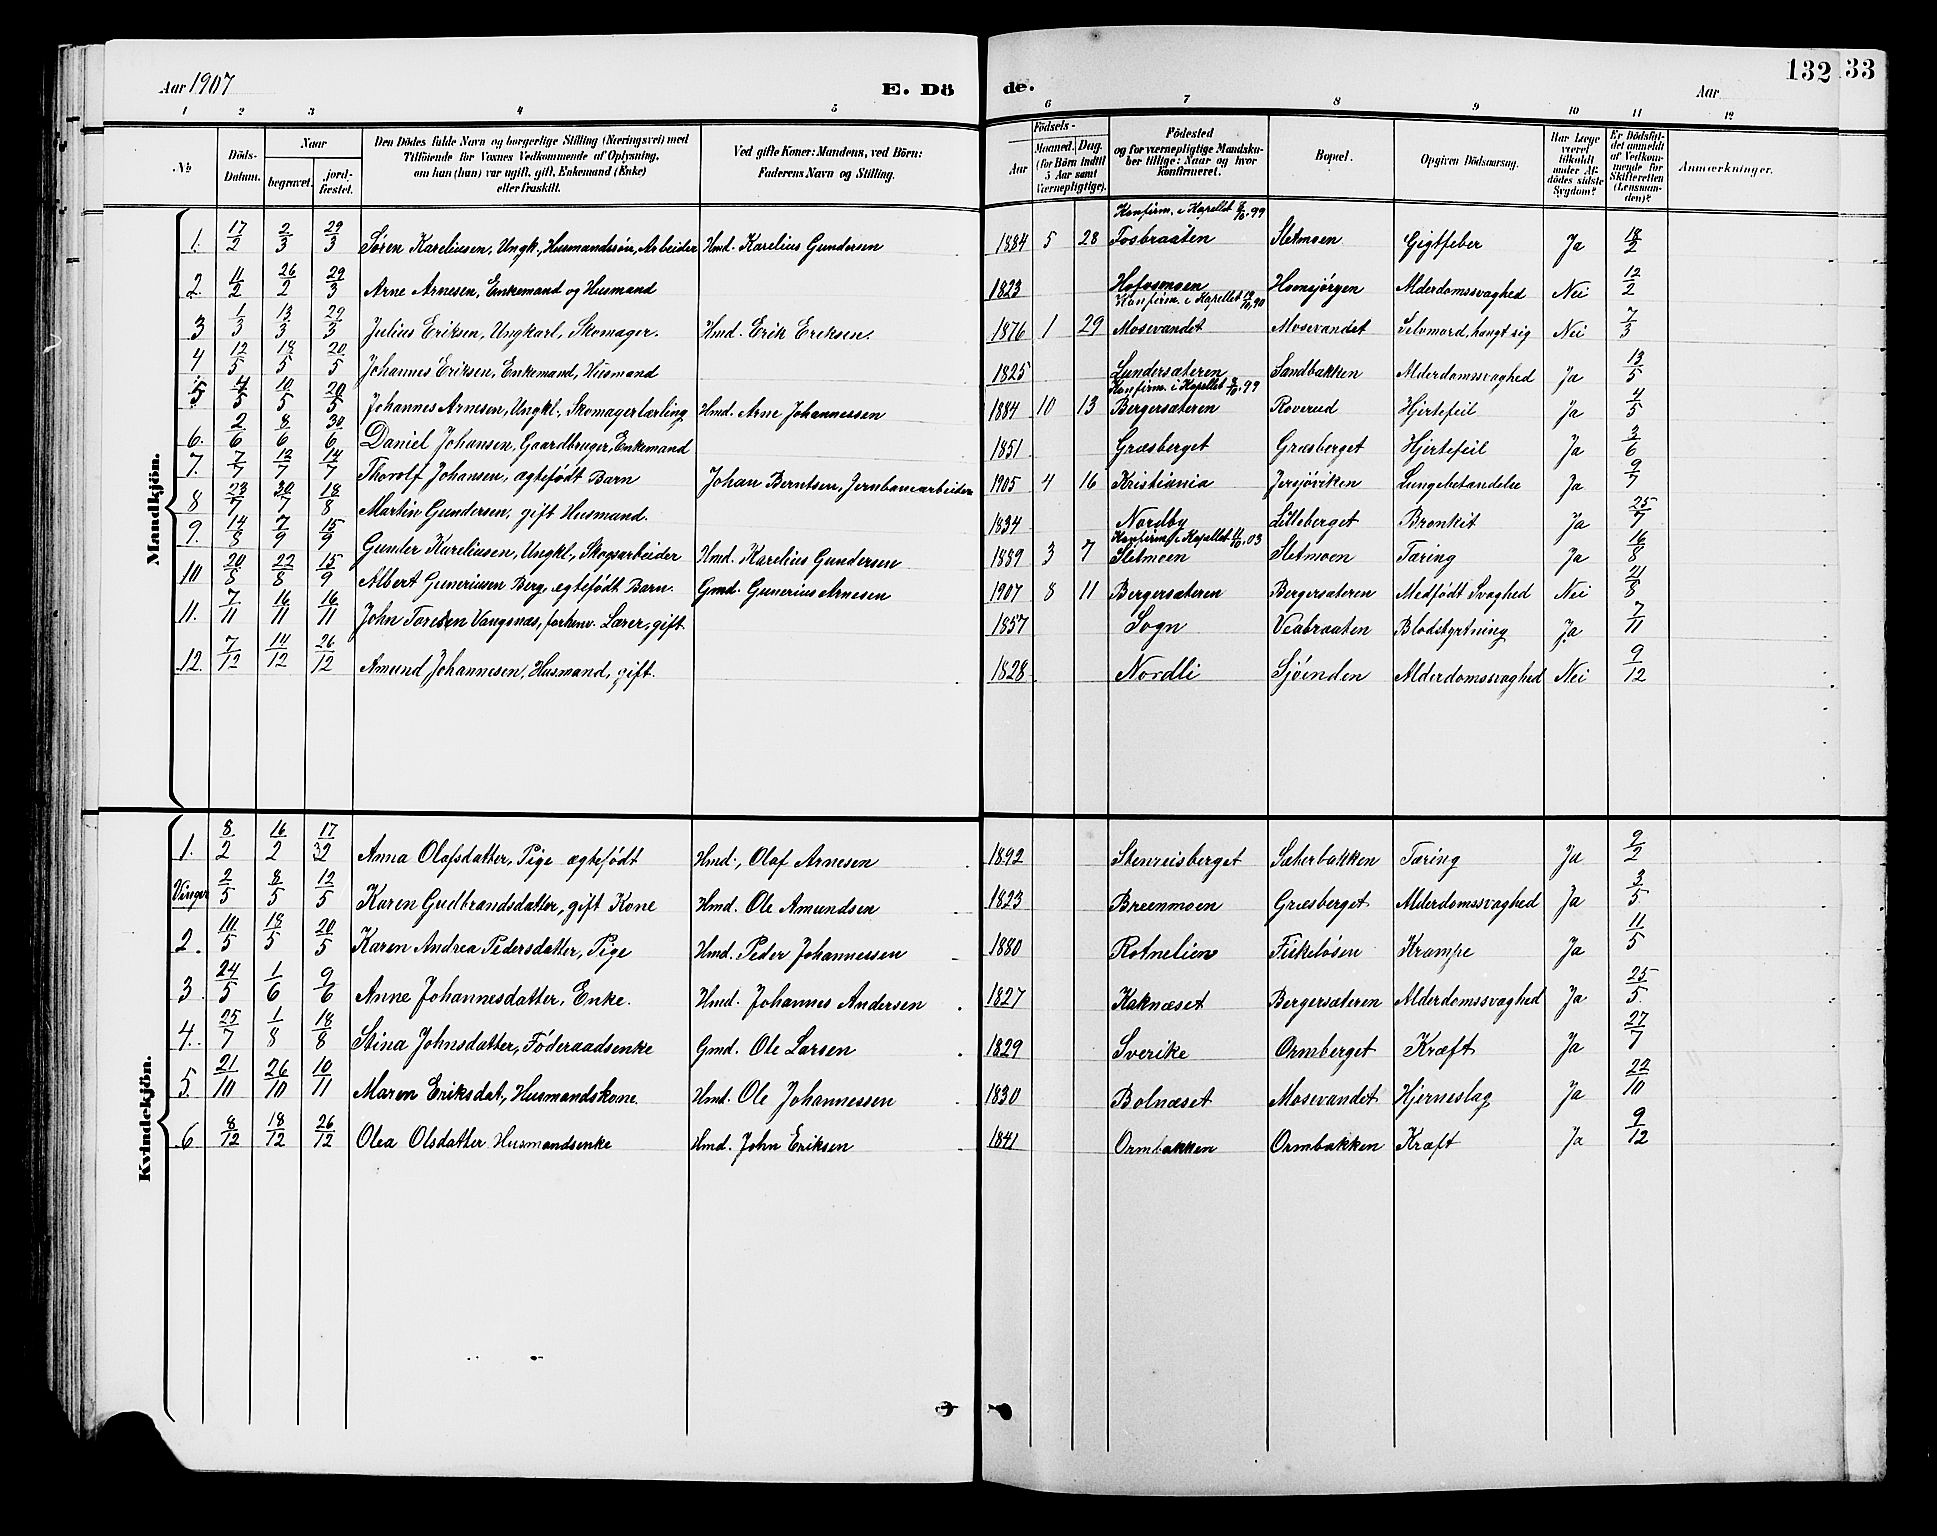 Aar 1907
E. Dö
de.
Aar
132
33
1 2 3 4 5 6 7 8 9 10 11 12
No
Döds-Datum.
Naar
begravet.
jord-fæstet.
Den Dödes fulde Navn og borgerlige Stilling (Næringsvei) med
Tilföiende for Voxnes Vedkommende af Oplysning,
om hun (han) var ugift, gift, Enkemand (Enke)
eller fraskilt.
Ved gifte Koner: Mandens, ved Börn:
Faderens Navn og Stilling.
Födsels-
Aar
Maaned. Dag.
(for Börn indtil 5 Aar samt Værnepligtige).
Födested
og for værnepligtige Mandska-
ber tillige: Naar og hvor
konfirmeret.
Bopæl.
Opgiven Dödsaarsag.
Har Læge været tilkaldt under Afdödes sidste Sygdom?
Er Dödsfaldet anmeldt af Vedkommende for Skifteretten (Lensmanden)?
Anmærkninger.
Mandkjön.
Konfirm. i Kapellet 8/10.99
1. 17/2 2/3 29/3 Søren Kareliusen, Ungk., Husmandssøn, Arbeider Hmd. Karelius Gundersen 1884 5 28 Fosbraaten Sletmoen Gigtfeber Ja 18/2
2. 11/2 26/2 29/3 Arne Arnesen, Enkemand og Husmand 1823 Hofosmoen Havnsjørgen Alderdomssvaghed Nei 12/2
Konfirm. i Kapellet 12/10,90
3 1/3 13/3 29/3 Julius Eriksen, Ungkarl, Skomager. Hmd. Erik Eriksen. 1876 1 29 Mosevandet Mosevandet Selvmord, hængt sig Nei 7/3
4 12/5 18/5 20/5 Johannes Eriksen, Enkemand, Husmand 1825 Lundersæteren Sandbakken Alderdomssvaghed Ja 13/5
Konfirm. i Kapellet 8/10.99
5 4/5 10/5 20/5 Johannes Arnesen, Ungkl., Skomagerlærling Hmd. Arne Johannessen 1884 10 13 Bergersæteren Roverud Hjertefeil Ja 4/5
6. 2/6 8/6 30/6 Daniel Johansen, Gaardbruger, Enkemand 1851 Græsberget Græsberget Hjertefeil Ja 3/6
7. 7/7 12/7 14/7 Thorolf Johansen, ægtefødt Barn Johan Berntsen, Jernbanearbeider 1905 4 16 Kristiania Jersjøviken Lungebetændelse Ja 9/7
8 23/7 30/7 18/8 Martin Gundersen, gift Husmand. 1834 Nordby Lilleberget Bronkit Ja 25/7
Konfirm. i Kapellet 11/10.03
9. 14/8 7/9 15/9 Gunder Kareliusen, Ungkl., Skogsarbeider Hmd. Karelius Gundersen 1889 3 7 Sletmoen Sletmoen Tæring Ja 16/8
10 20/8 22/8 15/9 Albert Guneriusen Berg, ægtefødt Barn. Gmd. Gunerius Arnesen 1907 8 11 Bergersæteren Bergersæteren Medfødt Svaghed Nei 21/8
11. 7/11 16/11 16/11 John Toresen Vangsnæs, forhenv. Lærer, gift. 1857 Sogn Veabraaten Blodstyrtning Ja 7/11
12. 7/12 14/12 26/12 Amund Johannesen, Husmand, gift. 1828 Nordli Sjøenden Alderdomssvaghed Nei 9/12
Kvindekjön.
1. 8/2 16/2 17/2 Anna Olafsdatter, Pige ægtefødt Hmd., Olaf Arnesen 1892 Stenreisberget Sæterbakken Tæring Ja 9/2
Vinger 2/5 8/5 12/5 Karen Gudbrandsdatter, gift Kone Hmd. Ole Amundsen 1823 Breenmoen Græsberget Alderdomssvaghed Ja 3/5
2. 10/5 18/5 20/5 Karen Andrea Pedersdatter, Pige Hmd. Peder Johannessen 1880 Rotnelien Fiskeløsen Krampe Ja 11/5
3. 24/5 1/6 9/6 Anne Johannesdatter, Enke. Hmd. Johannes Andersen 1827 Kaknæset Bergersæteren Alderdomssvaghed Ja 25/5
4. 25/7 1/8 18/8 Stina Johnsdatter, Føderaadsenke Gmd. Ole Larsen 1829 Sverike Ormberget Kræft Ja 27/7
5. 21/10 26/10 10/11 Maren Eriksdat., Husmandskone. Hmd. Ole Johannessen 1830 Bolnæset Mosevandet Hjerneslag Ja 22/10
6 8/12 18/12 26/12 Olea Olsdatter Husmandsenke Hmd. John Eriksen 1841 Ormbakken Ormbakken Kræft Ja 9/12